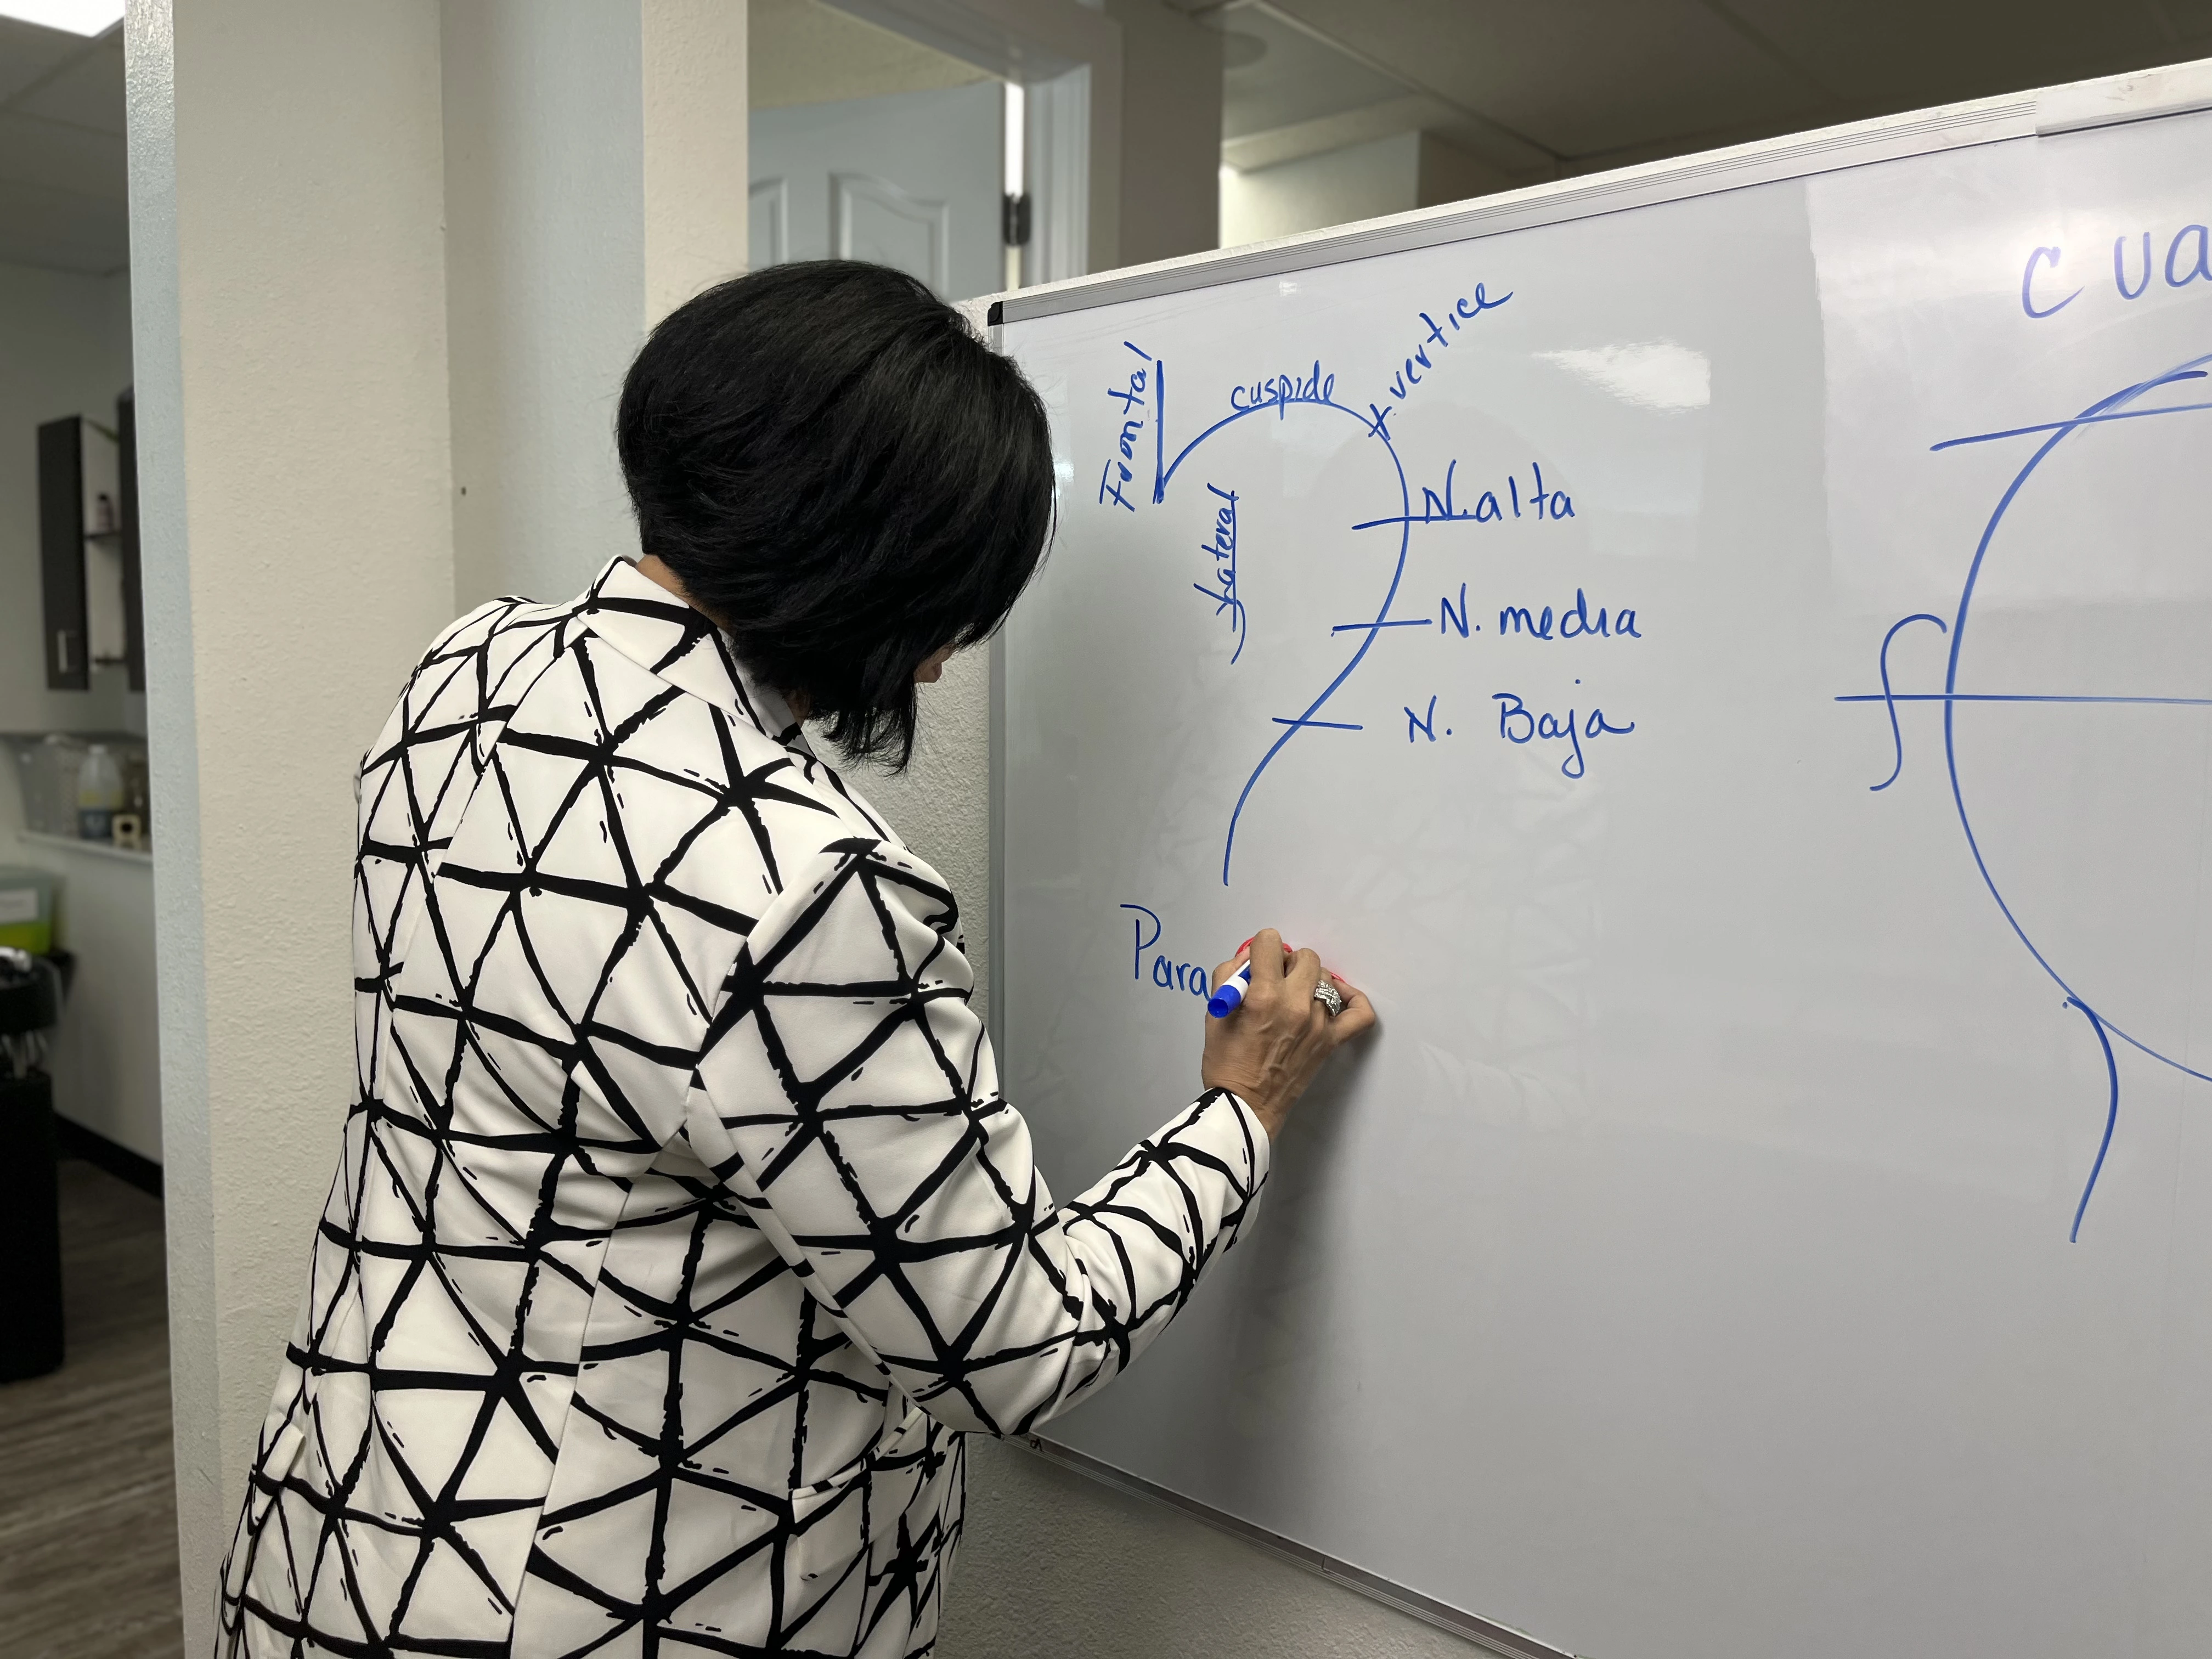 Frontal
cuspide
vertice
Lateral
N. alta
N. media
N. Baja
Para
CUA